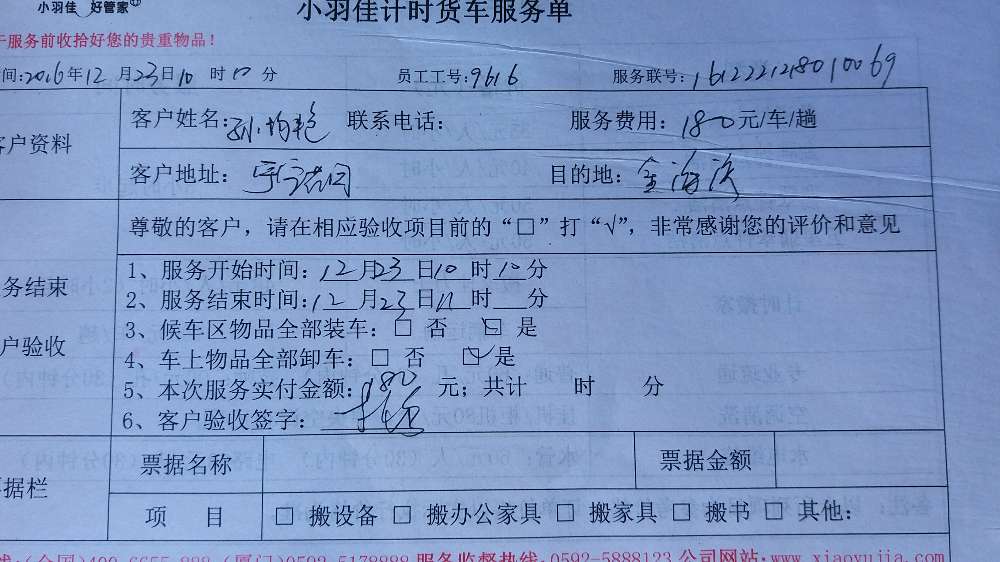 小羽佳 好管家
小羽佳计时货车服务单
服务前收拾好您的贵重物品！
间:2016年12月23日10时10分 员工工号:9616 服务联号:1612221218010069
客户资料
客户姓名: 联系电话: 服务费用: 180元/车/趟
客户地址: 目的地:
尊敬的客户，请在相应验收项目前的“□”打“√”，非常感谢您的评价和意见
务结束
户验收
1、服务开始时间: 12月23日10时10分
2、服务结束时间: 12月23日11时 分
3、候车区物品全部装车: □ 否 □ 是
4、车上物品全部卸车: □ 否 □ 是
5、本次服务实付金额: 180 元; 共计 时 分
6、客户验收签字:
票据栏
票据名称 票据金额
项 目 □ 搬设备 □ 搬办公家具 □ 搬家具 □ 搬书 □ 其他:
服务监督热线:0592-5888123 公司网站:www.xiaoyujia.com